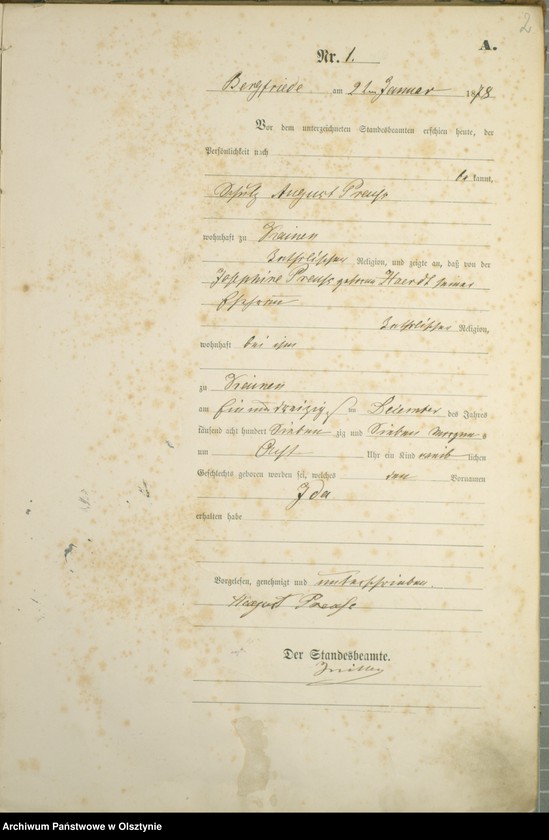 2
A.
Nr. 1.
Bergfriede am 2ten Januar 1878
Vor dem unterzeichneten Standesbeamten erschien heute, der
Persönlichkeit nach
bekannt,
August Preuß
wohnhaft zu
katholischer Religion, und zeigte an, daß von der
Josephine Preuß geborne seiner
Ehefrau
katholischer Religion,
wohnhaft bei ihm
zu
am ein und dreizig sten Dezember des Jahres
tausend acht hundert Sieben zig und Sieben Morgens
um Acht Uhr ein Kind weib lichen
Geschlechts geboren worden sei, welches den Vornamen
Ida
erhalten habe
Vorgelesen, genehmigt und unterschrieben.
August Preuß
Der Standesbeamte.
Archiwum Państwowe w Olsztynie